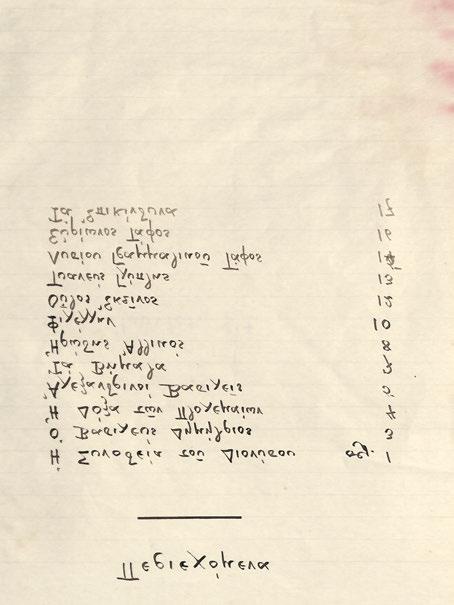 Περιεχόμενα
Ἡ Συνοδεία τοῦ Διονύσου σελ. 1
Ὁ Βασιλεύς Δημήτριος 3
Ἡ Δόξα τῶν Πτολεμαίων 4
Ἀλεξανδρινοί Βασιλεῖς 5
Τά Βήματα 7
Ἡρώδης Ἀττικός 8
Φιλέλλην 10
Οὗτος Ἐκεῖνος 12
Τυανεύς Γλύπτης 13
Λυσίου Γραμματικοῦ Τάφος
Εὐρίωνος Τάφος 16
Τά Ἐπικίνδυνα 17